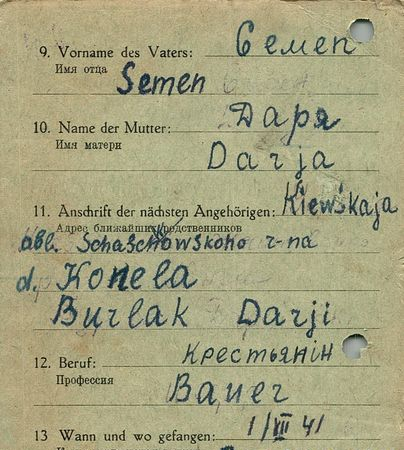 9. Vorname des Vaters: Семен
Имя отца
Semen
10. Name der Mutter: Даря
Имя матери
Darja
11. Anschrift der nächsten Angehörigen: Kiewskaja
Адрес ближайших родственников
obl. Schaschkowskoho r-na
d. Konela
Burlak Darji
12. Beruf: Крестьянін
Профессия
Bauer
13 Wann und wo gefangen: 1/VII 41